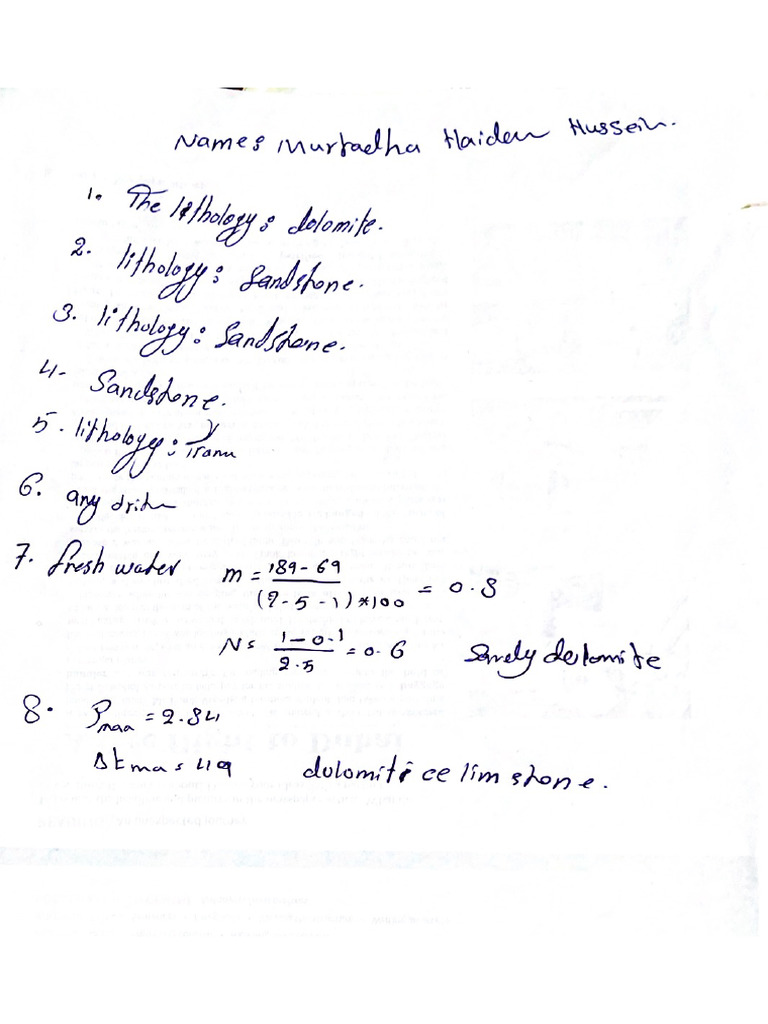 Name: Murtadha Haider Hussein.
1. The lithology: dolomite.
2. lithology: Sandstone.
3. lithology: Sandstone.
4- Sandstone.
5. lithology:
6. any
7. fresh water m = 189-69 / (2-5-1)*100 = 0.8
N = 1-0.1 / 2.5 = 0.6 dolomite
8. ρmaa = 2.84
Δtma = 49 dolomitice limstone.